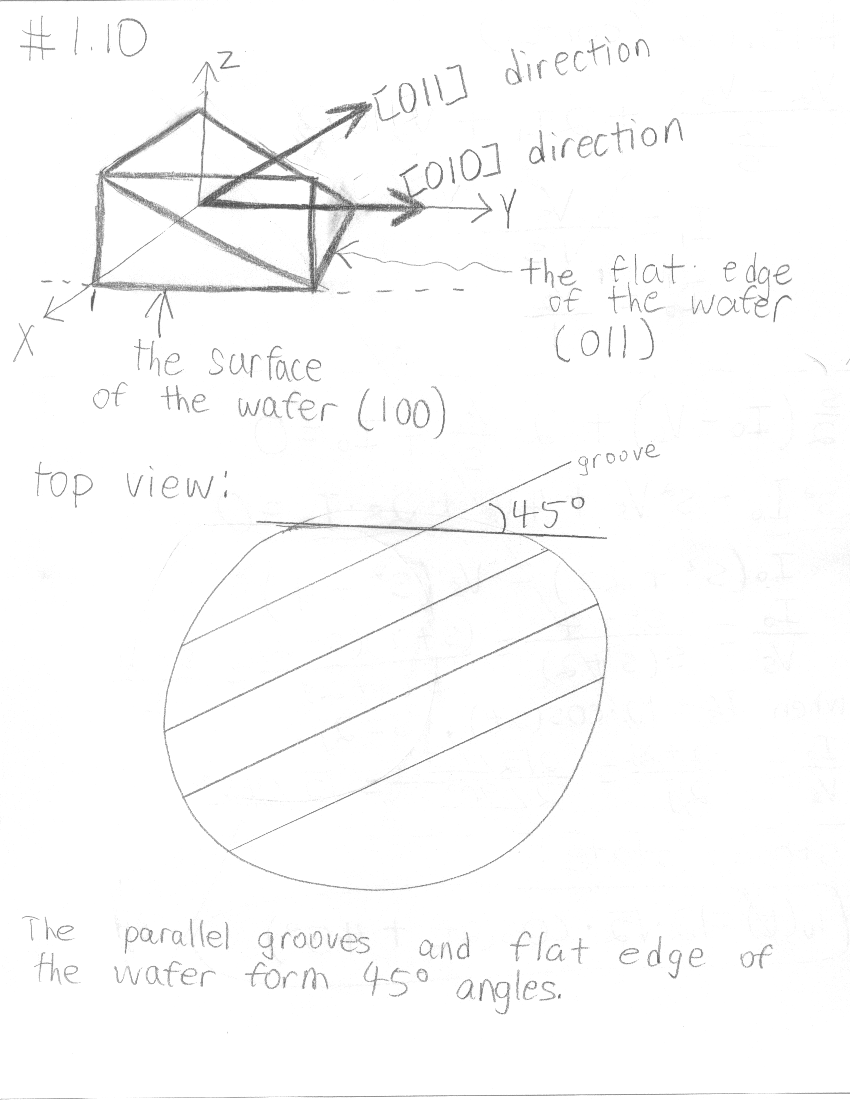 #1.10
Z
[011] direction
[010] direction
Y
the flat edge
of the wafer
(011)
X
the surface
of the wafer (100)
top view:
groove
45°
The parallel grooves and flat edge of
the wafer form 45° angles.